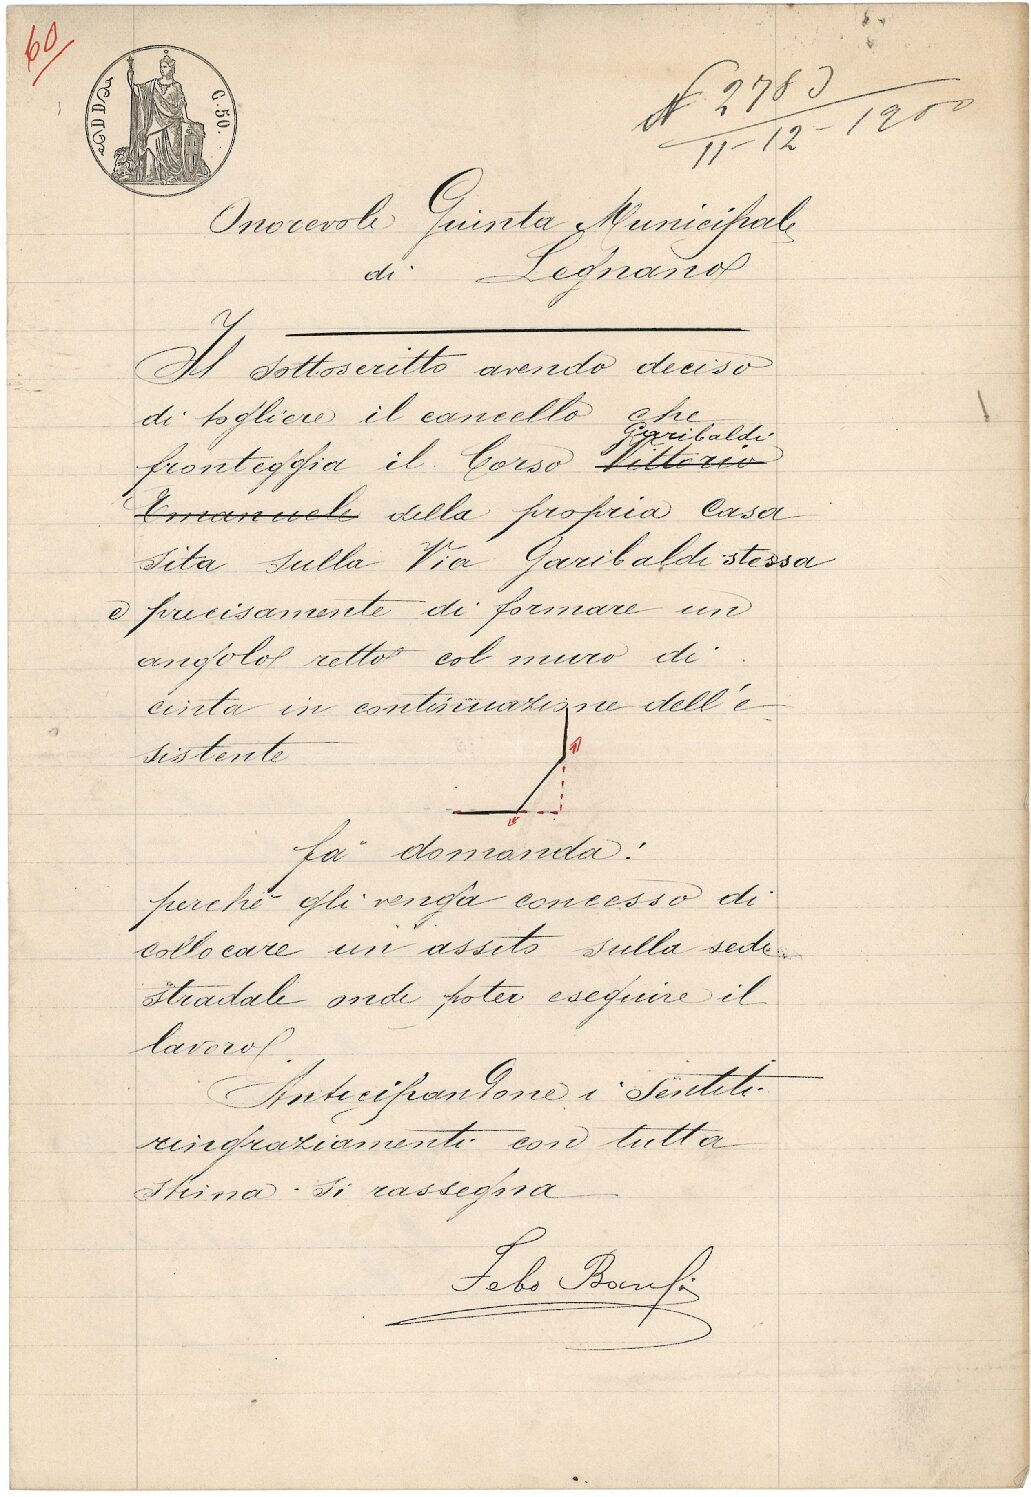 60
C. 50.
N 2783
11-12-1900
Onorevole Giunta Municipale
di Legnano
Il sottoscritto avendo deciso
di togliere il cancello che
Garibaldi
fronteggia il Corso Vittorio
Emanuele della propria Casa
sita sulla Via Garibaldi stessa
e precisamente di formare un
angolo retto col muro di
cinta in continuazione dell'e-
sistente
fa domanda:
perchè gli venga concesso di
collocare un assito sulla sede
stradale onde poter eseguire il
lavoro.
Anticipandone i sentiti
ringraziamenti con tutta
stima si rassegna
Febo Banfi